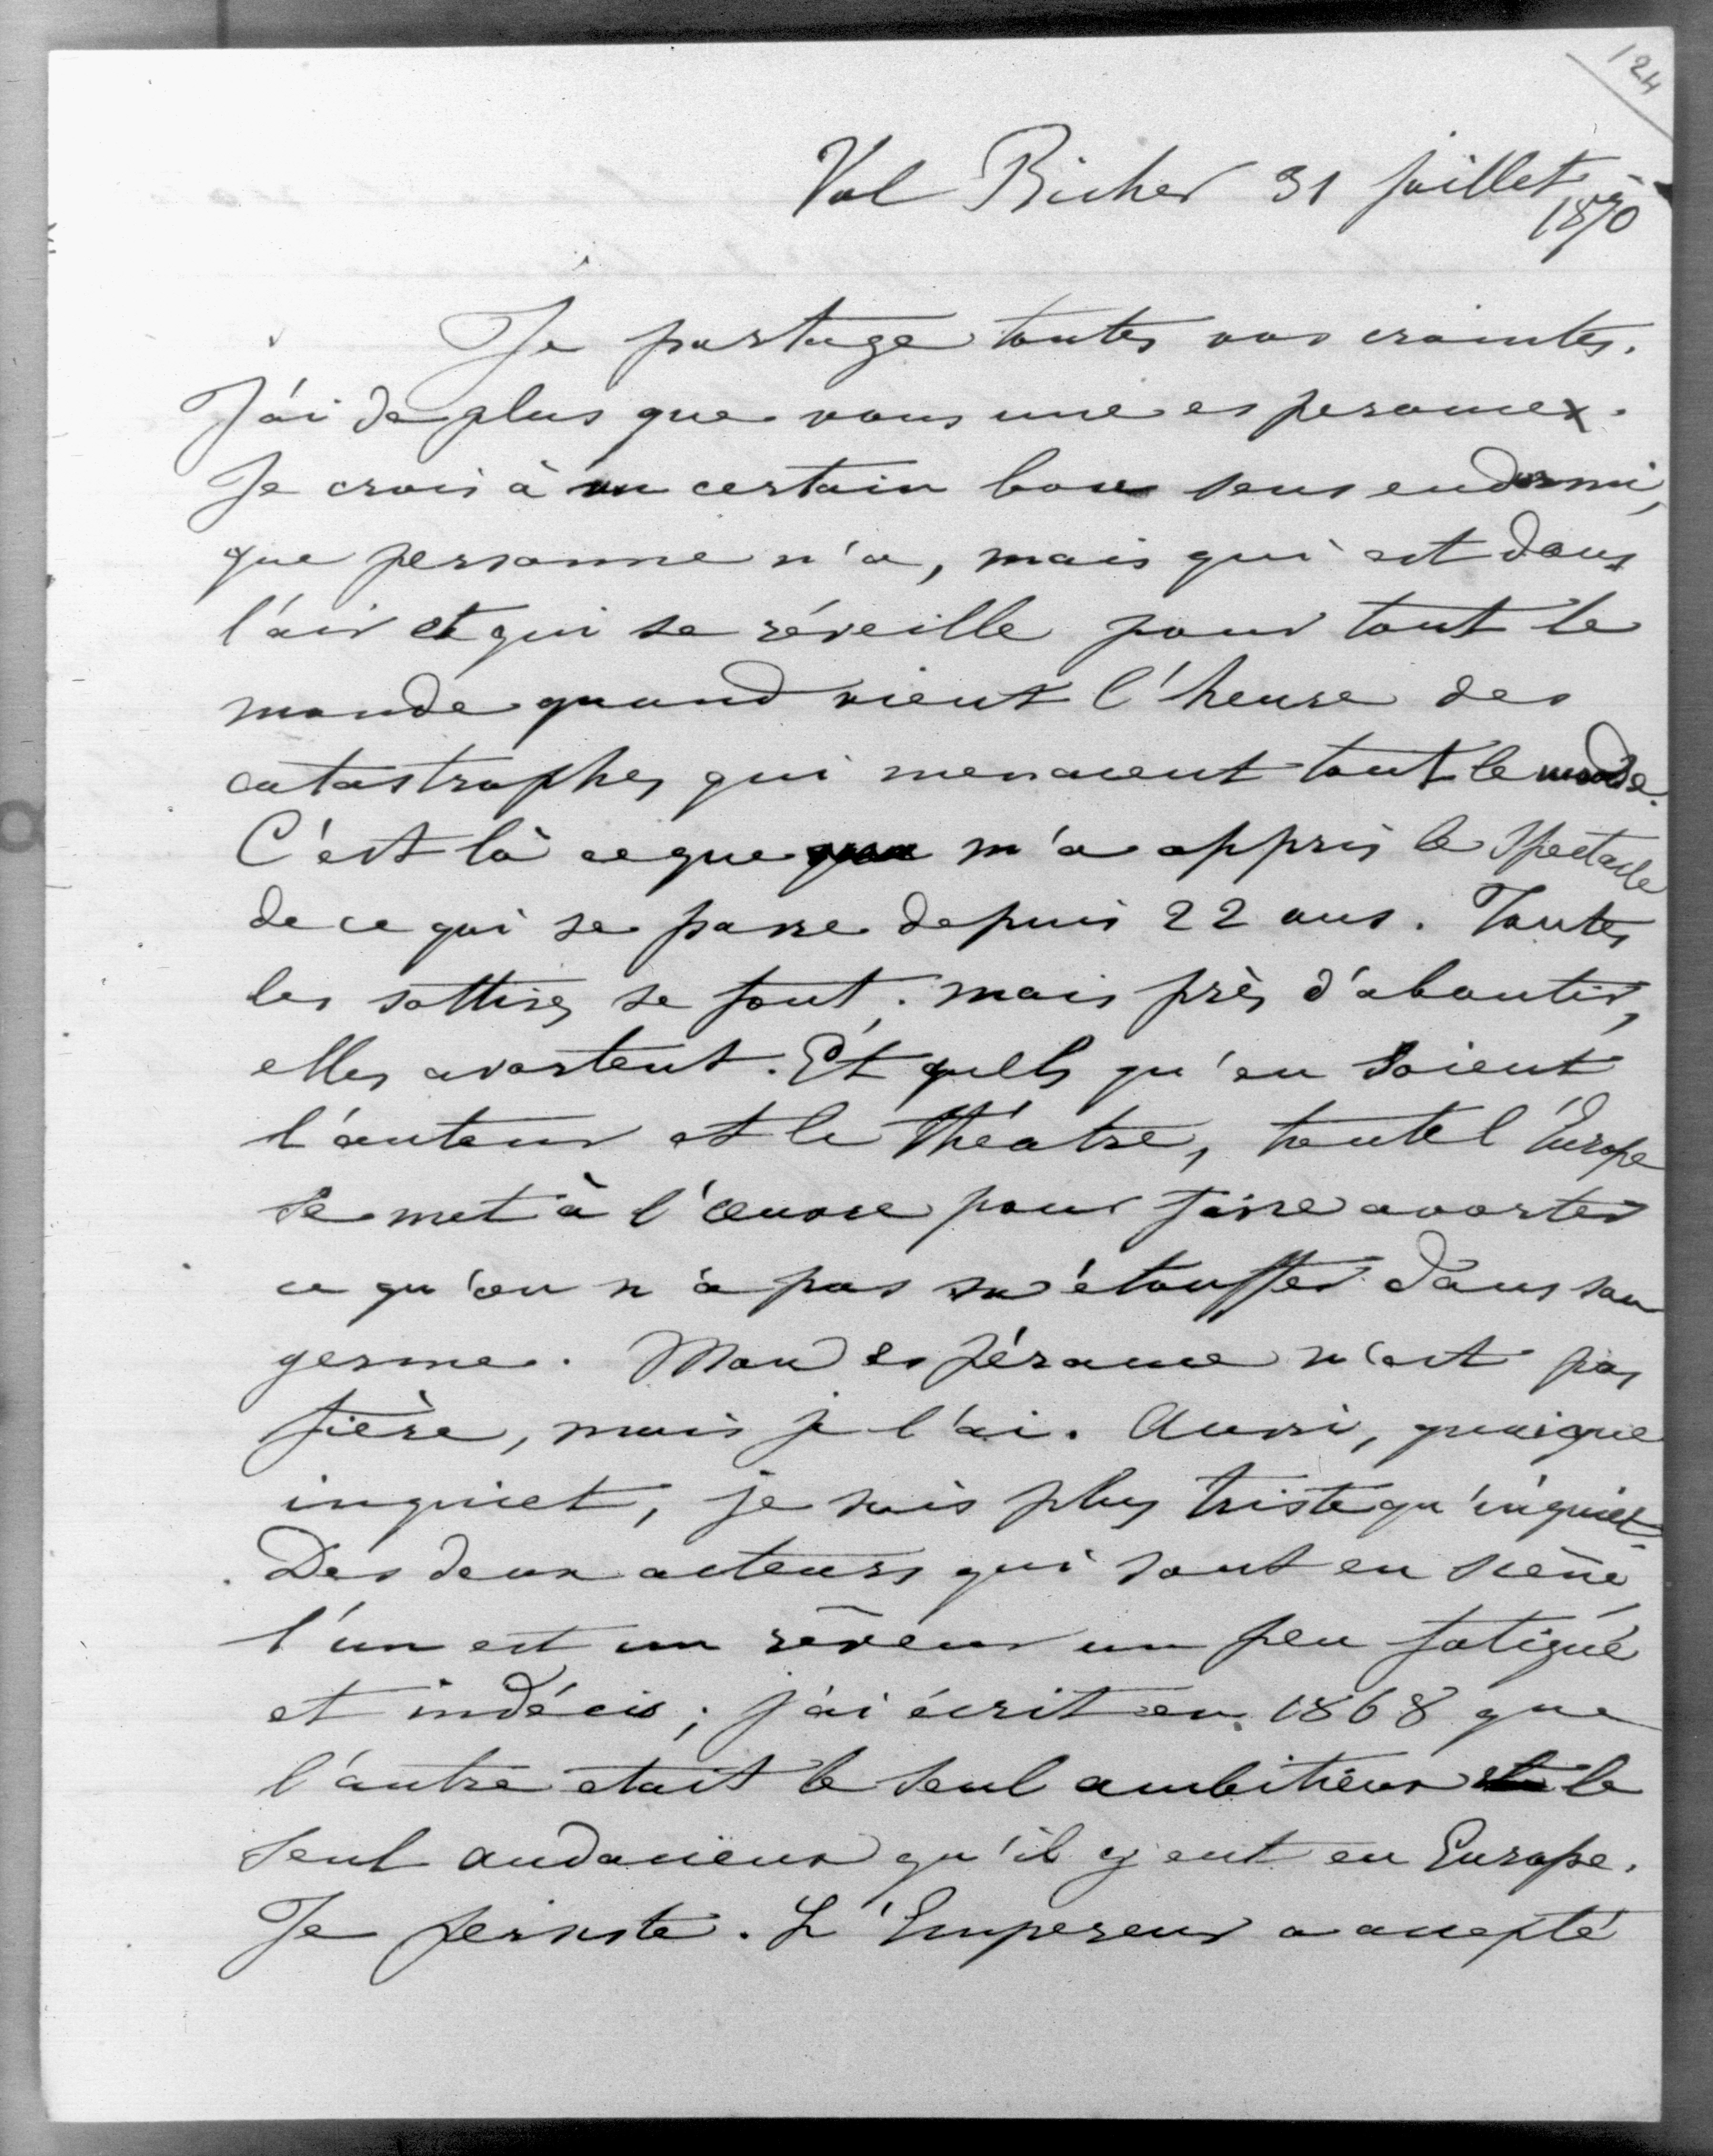 124
Val Richer 31 juillet
1870
Je partage toutes vos craintes.
J'ai de plus que vous une esperance.
Je crois à un certain bon sens endormi,
que personne n'a, mais qui est dans
l'air et qui se réveille pour tout le
monde quand vient l'heure des
catastrophes qui menacent tout le monde.
C'est là ce que m'a appris le spectacle
de ce qui se passe depuis 22 ans. Toutes
les sottises se font; mais près d'aboutir,
elles avortent. Et quels qu'en soient
l'auteur et le théatre, toute l'Europe
se met à l'œuvre pour faire avorter
ce qu'on n'a pas su étouffer dans son
germe. Mon espérance n'est pas
fière, mais je l'ai. Aussi, quoique
inquiet, je suis plus triste qu'inquiet.
Des deux acteurs qui sont en scène
l'un est un rêveur un peu fatigué
et indécis; j'ai écrit en 1868 que
l'autre était le seul ambitieux le
seul audacieux qu'il y eut en Europe.
Je persiste. L'Empereur a accepté